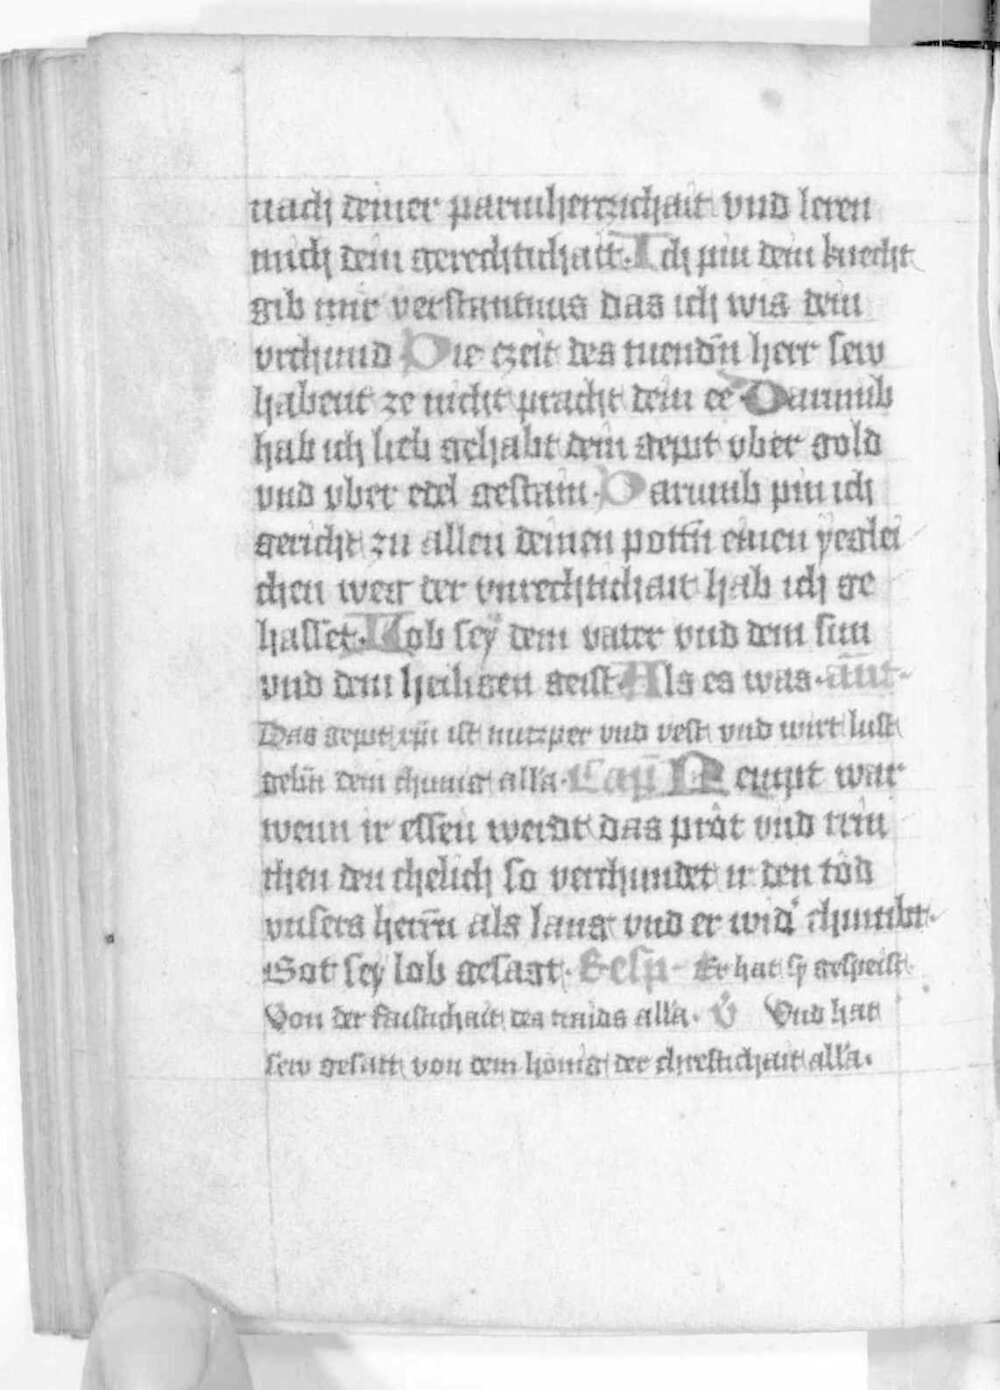 nach deiner parmherczichait vnd leren
mich dein gerechtichait. Ich pin dein knecht
gib mir verstantnus das ich wis dein
vrchund Die czeit des tuendn̄ herr sew
habent ze nicht pracht dein ee Darumb
hab ich lieb gehabt dein gepot vber gold
vnd vber edel gestain. Darumb pin ich
gericht zu allen deinen pottn̄ einen yeglei
chen weg der vnrechtichait hab ich ge
hasset. Lob sey dem vater vnd dem sun
vnd dem heiligen geist. Als es was. an̄t.
Das geput xpi ist nutzper vnd vest vnd wirt lust
gebn̄ dem chunig alla. Cap̄ Nempt war
wenn ir essen werdt das prot vnd trin
chen den chelich so verchundet ir den tod
vnsers herrn̄ als lang vnd er wid' chumbt.
Got sey lob gesagt. Resp Er hat sy gespeist
Von der faistichait des traids alla. v̊ Vnd hat
sew gesatt von dem honig der chrestichait alla.